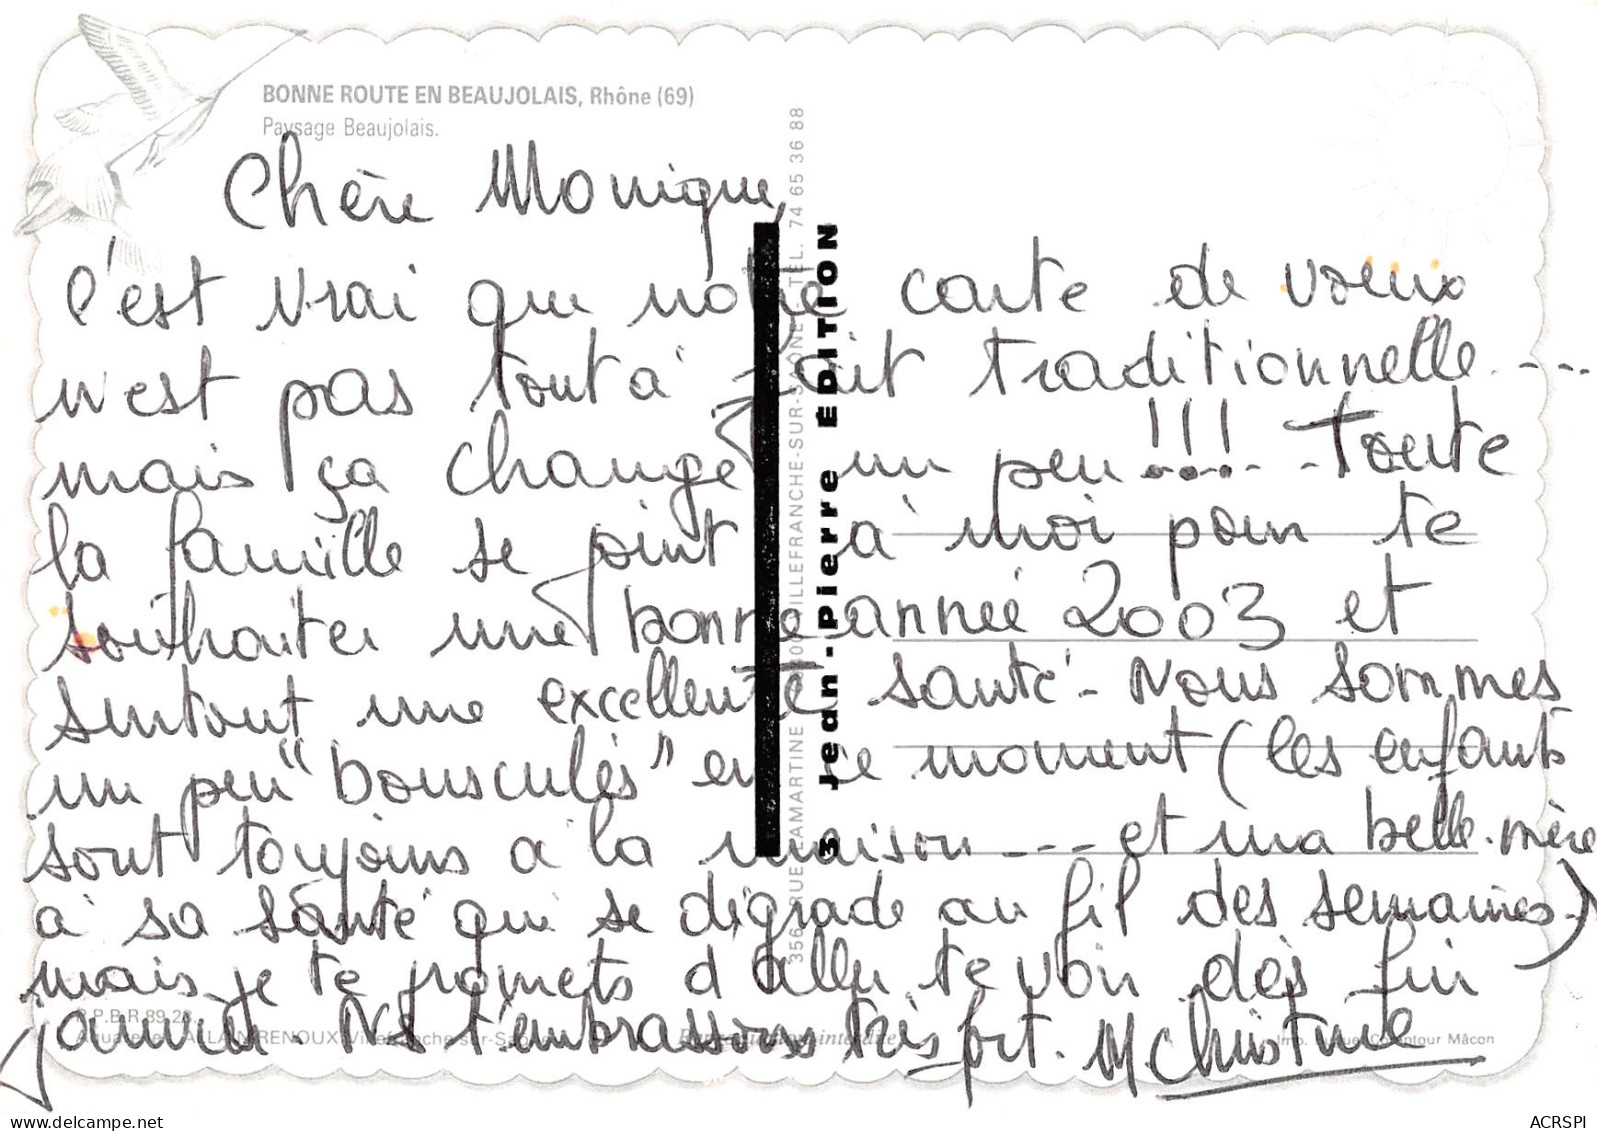 BONNE ROUTE EN BEAUJOLAIS, Rhône (69)
Paysage Beaujolais.
Chère Monique,
C'est vrai que notre carte de vœux
n'est pas tout à fait traditionnelle....
mais ça change un peu !!!... Toute
la famille se joint à moi pour te
souhaiter une bonne année 2003 et
surtout une excellente santé - Nous sommes
un peu "bousculés" en ce moment (les enfants
sont toujours à la maison --- et ma belle-mère
a sa santé qui se dégrade au fil des semaines-)
mais je te promets d'aller te voir dès fin
janvier Ns t'embrassons très fort. M Christine
3 Jean-Pierre ÉDITION
356, RUE LAMARTINE VILLEFRANCHE-SUR-SAÔNE - TEL. 74 65 36 88
P.P.B.R 89.28
Aquarelle ALLAIN RENOUX Villefranche-sur-Saône
Reproduction interdite
Imp. Comptour Mâcon
ACRSPI